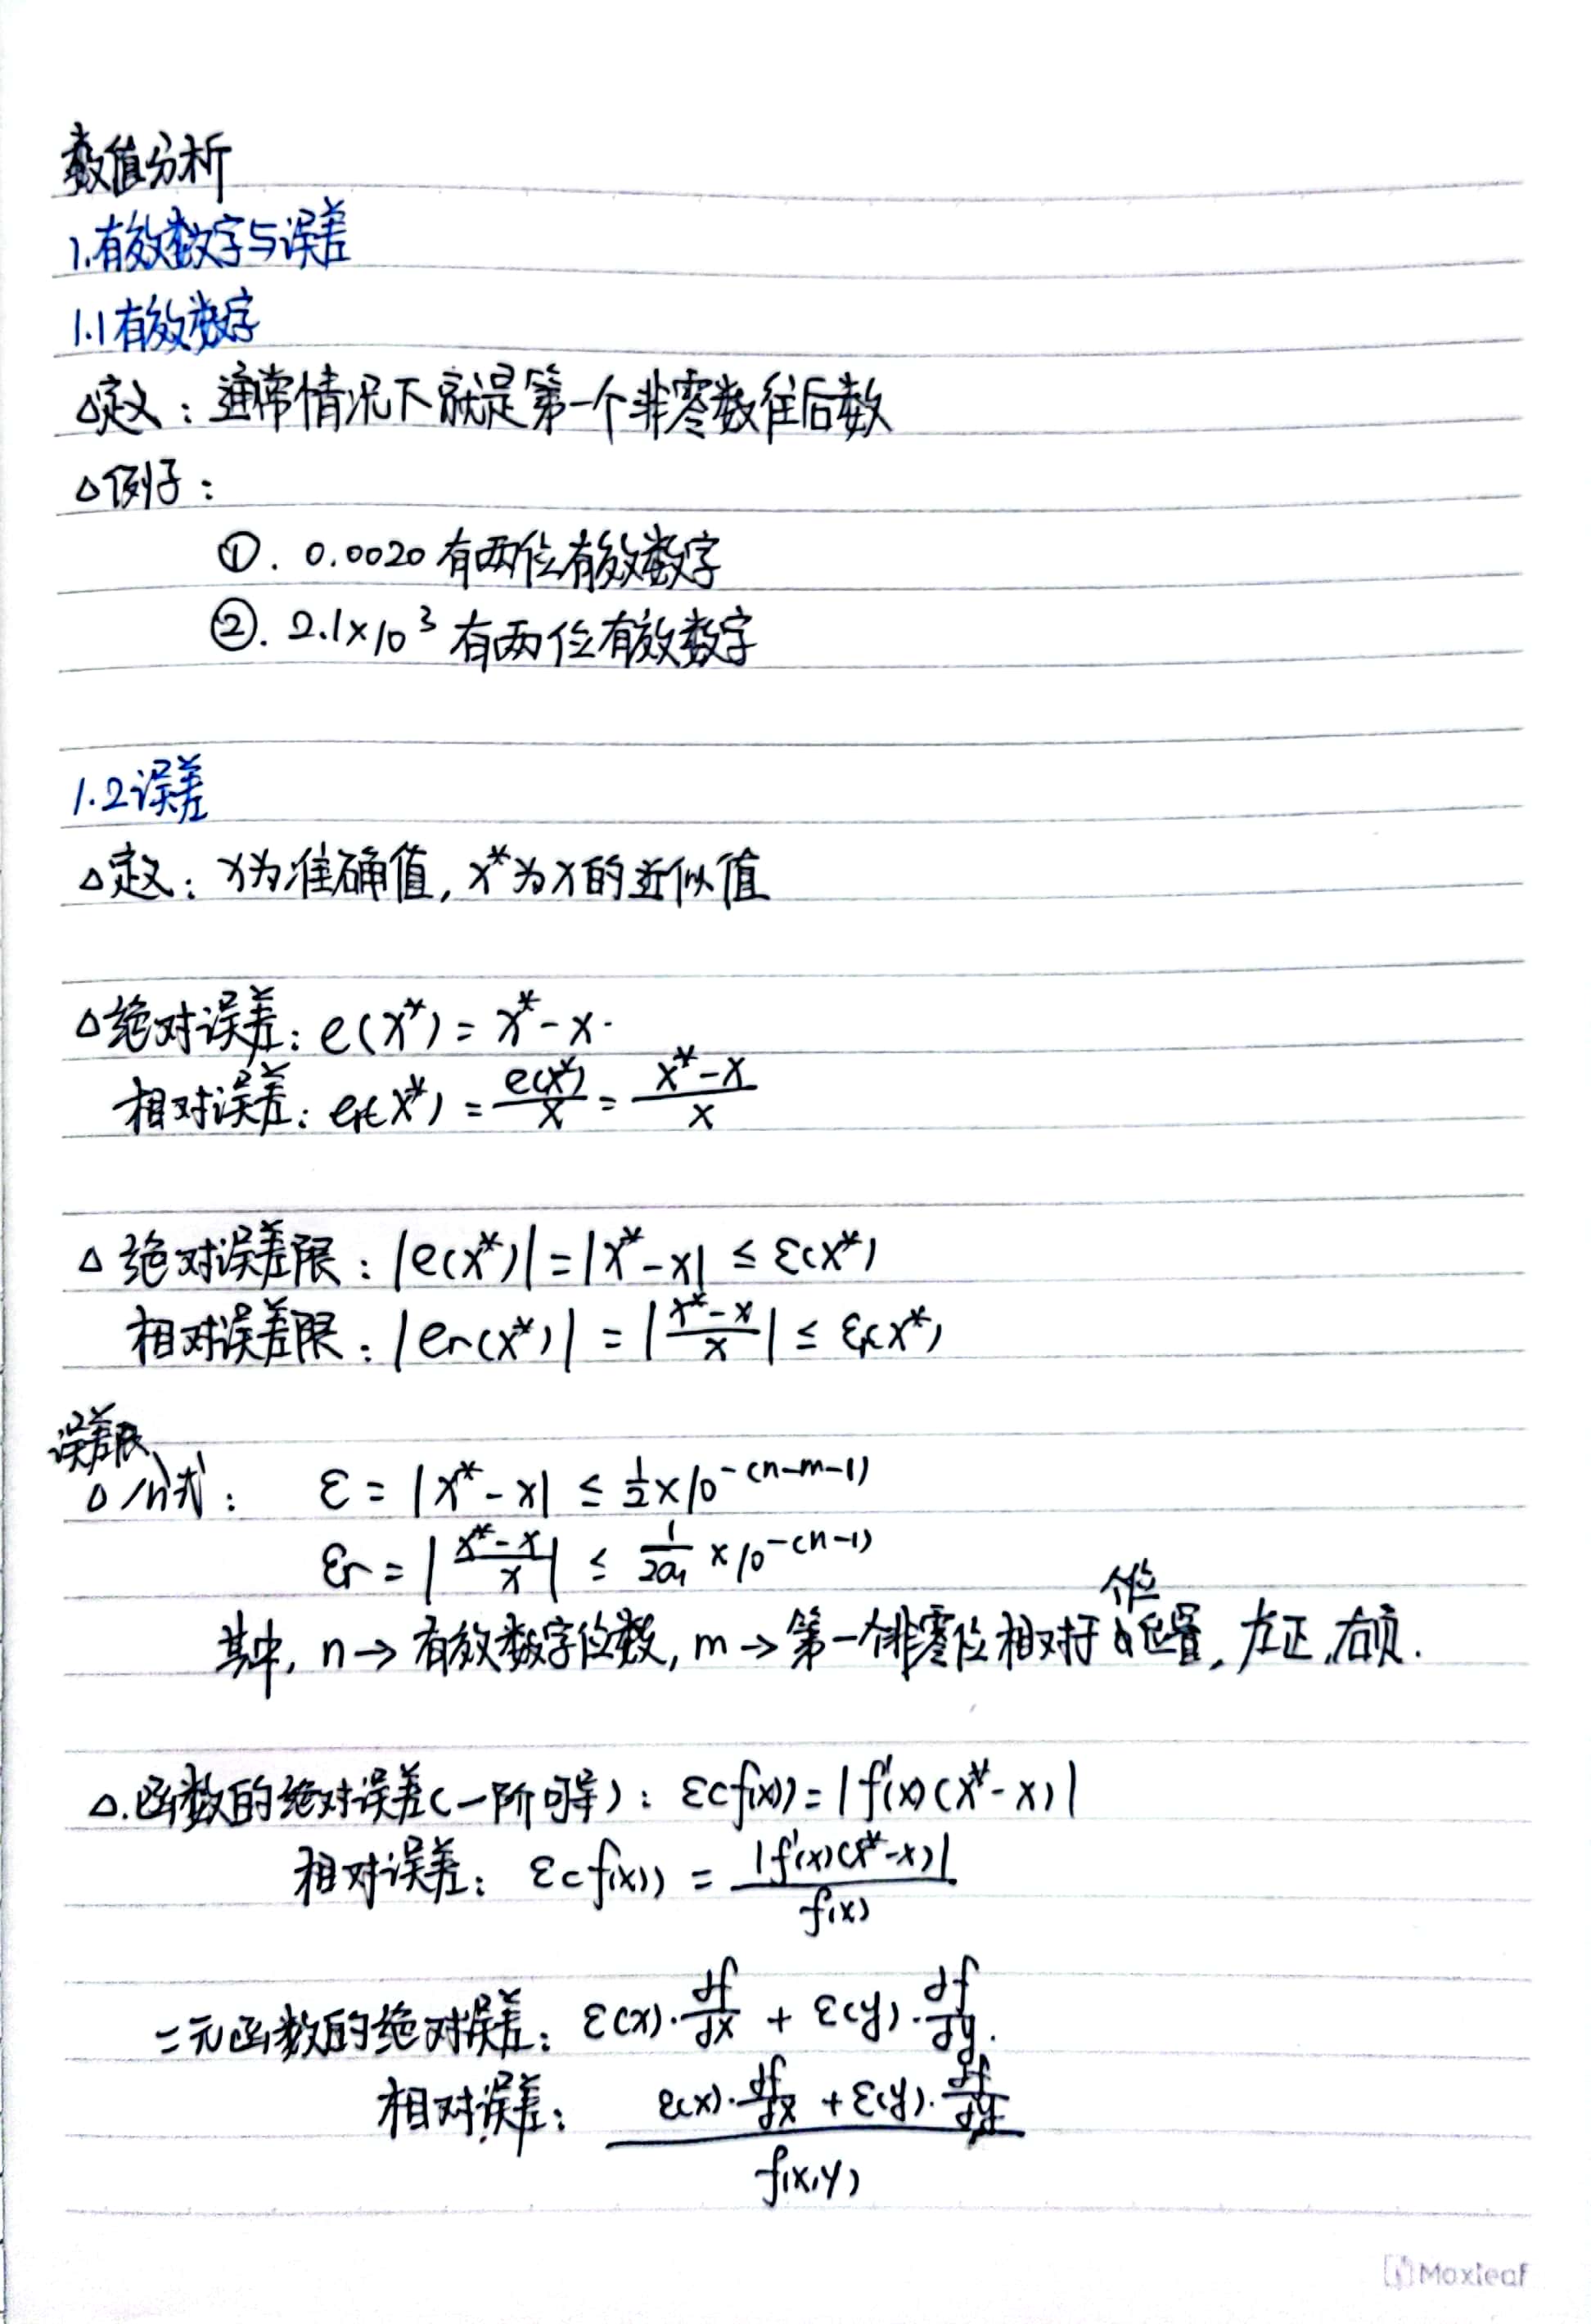 数值分析
1.有效数字与误差
1.1有效数字
△定义：通常情况下就是第一个非零数往后数
△例子：
①. 0.0020 有两位有效数字
②. 2.1×10³ 有两位有效数字
1.2误差
△定义：x为准确值，x*为x的近似值
△绝对误差：e(x*) = x* - x.
相对误差：er(x*) = e(x*)/x = (x* - x)/x
△绝对误差限：|e(x*)| = |x* - x| ≤ ε(x*)
相对误差限：|er(x*)| = |(x* - x)/x| ≤ εr(x*)
误差限
△公式：ε = |x* - x| ≤ 1/2 × 10^-(n-m-1)
εr = |(x* - x)/x| ≤ 1/(2a₁) × 10^-(n-1)
个位
其中，n → 有效数字位数，m → 第一个非零位相对于 位置，左正，右负.
△.函数的绝对误差(一阶可导)：ε(f(x)) = |f'(x)(x* - x)|
相对误差：ε(f(x)) = |f'(x)(x* - x)|/f(x)
二元函数的绝对误差：ε(x)·∂f/∂x + ε(y)·∂f/∂y.
相对误差：(ε(x)·∂f/∂x + ε(y)·∂f/∂y)/f(x,y)
Moxleaf